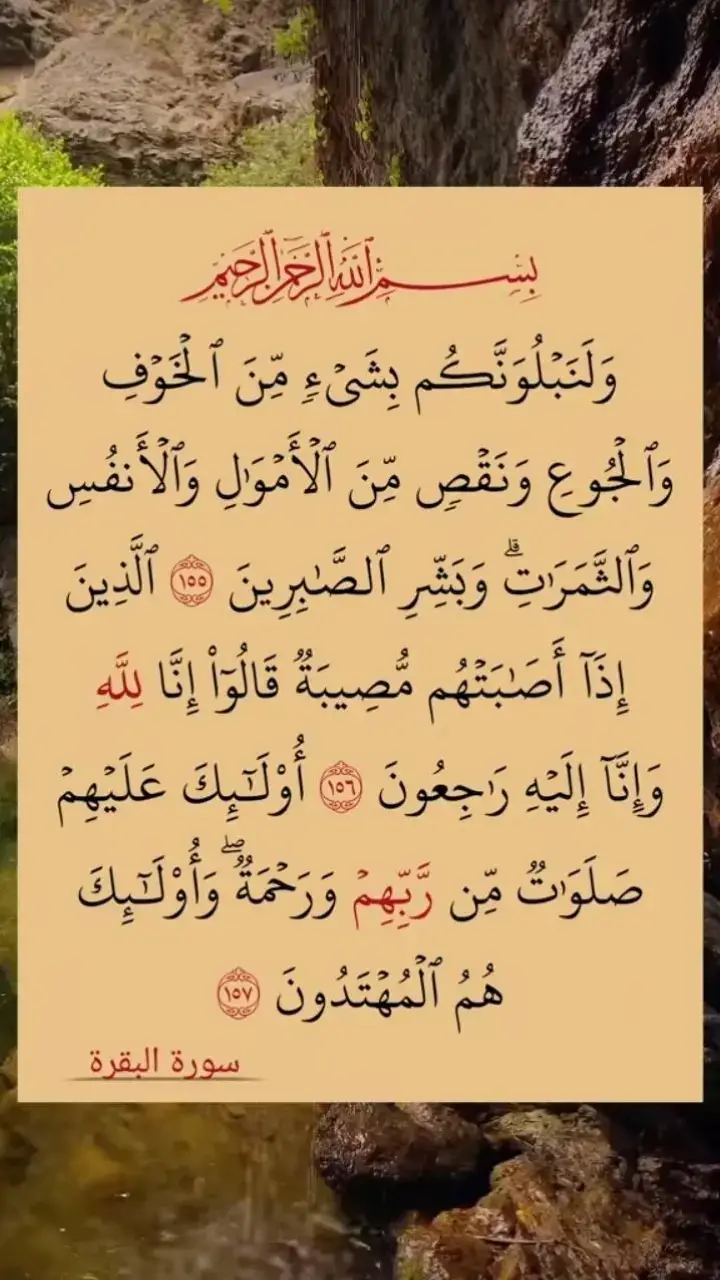 بِسْمِ ٱللَّهِ ٱلرَّحْمَٰنِ ٱلرَّحِيمِ
وَلَنَبْلُوَنَّكُم بِشَىْءٍ مِّنَ ٱلْخَوْفِ
وَٱلْجُوعِ وَنَقْصٍ مِّنَ ٱلْأَمْوَٰلِ وَٱلْأَنفُسِ
وَٱلثَّمَرَٰتِ ۗ وَبَشِّرِ ٱلصَّٰبِرِينَ ١٥٥ ٱلَّذِينَ
إِذَآ أَصَٰبَتْهُم مُّصِيبَةٌ قَالُوٓا۟ إِنَّا لِلَّهِ
وَإِنَّآ إِلَيْهِ رَٰجِعُونَ ١٥٦ أُو۟لَٰٓئِكَ عَلَيْهِمْ
صَلَوَٰتٌ مِّن رَّبِّهِمْ وَرَحْمَةٌ ۖ وَأُو۟لَٰٓئِكَ
هُمُ ٱلْمُهْتَدُونَ ١٥٧
سورة البقرة